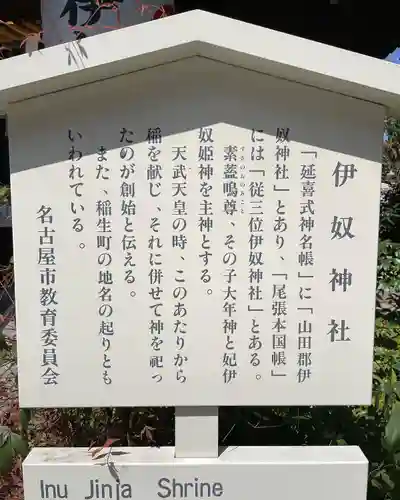 伊奴神社
「延喜式神名帳」に「山田郡伊
奴神社」とあり、「尾張本国帳」
には「従三位伊奴神社」とある。
素蓋嗚尊、その子大年神と妃伊
すさのおのみこと
奴姫神を主神とする。
天武天皇の時、このあたりから
稲を献じ、それに併せて神を祀っ
たのが創始と伝える。
また、稲生町の地名の起りとも
いわれている。
名古屋市教育委員会
Inu Jinja Shrine